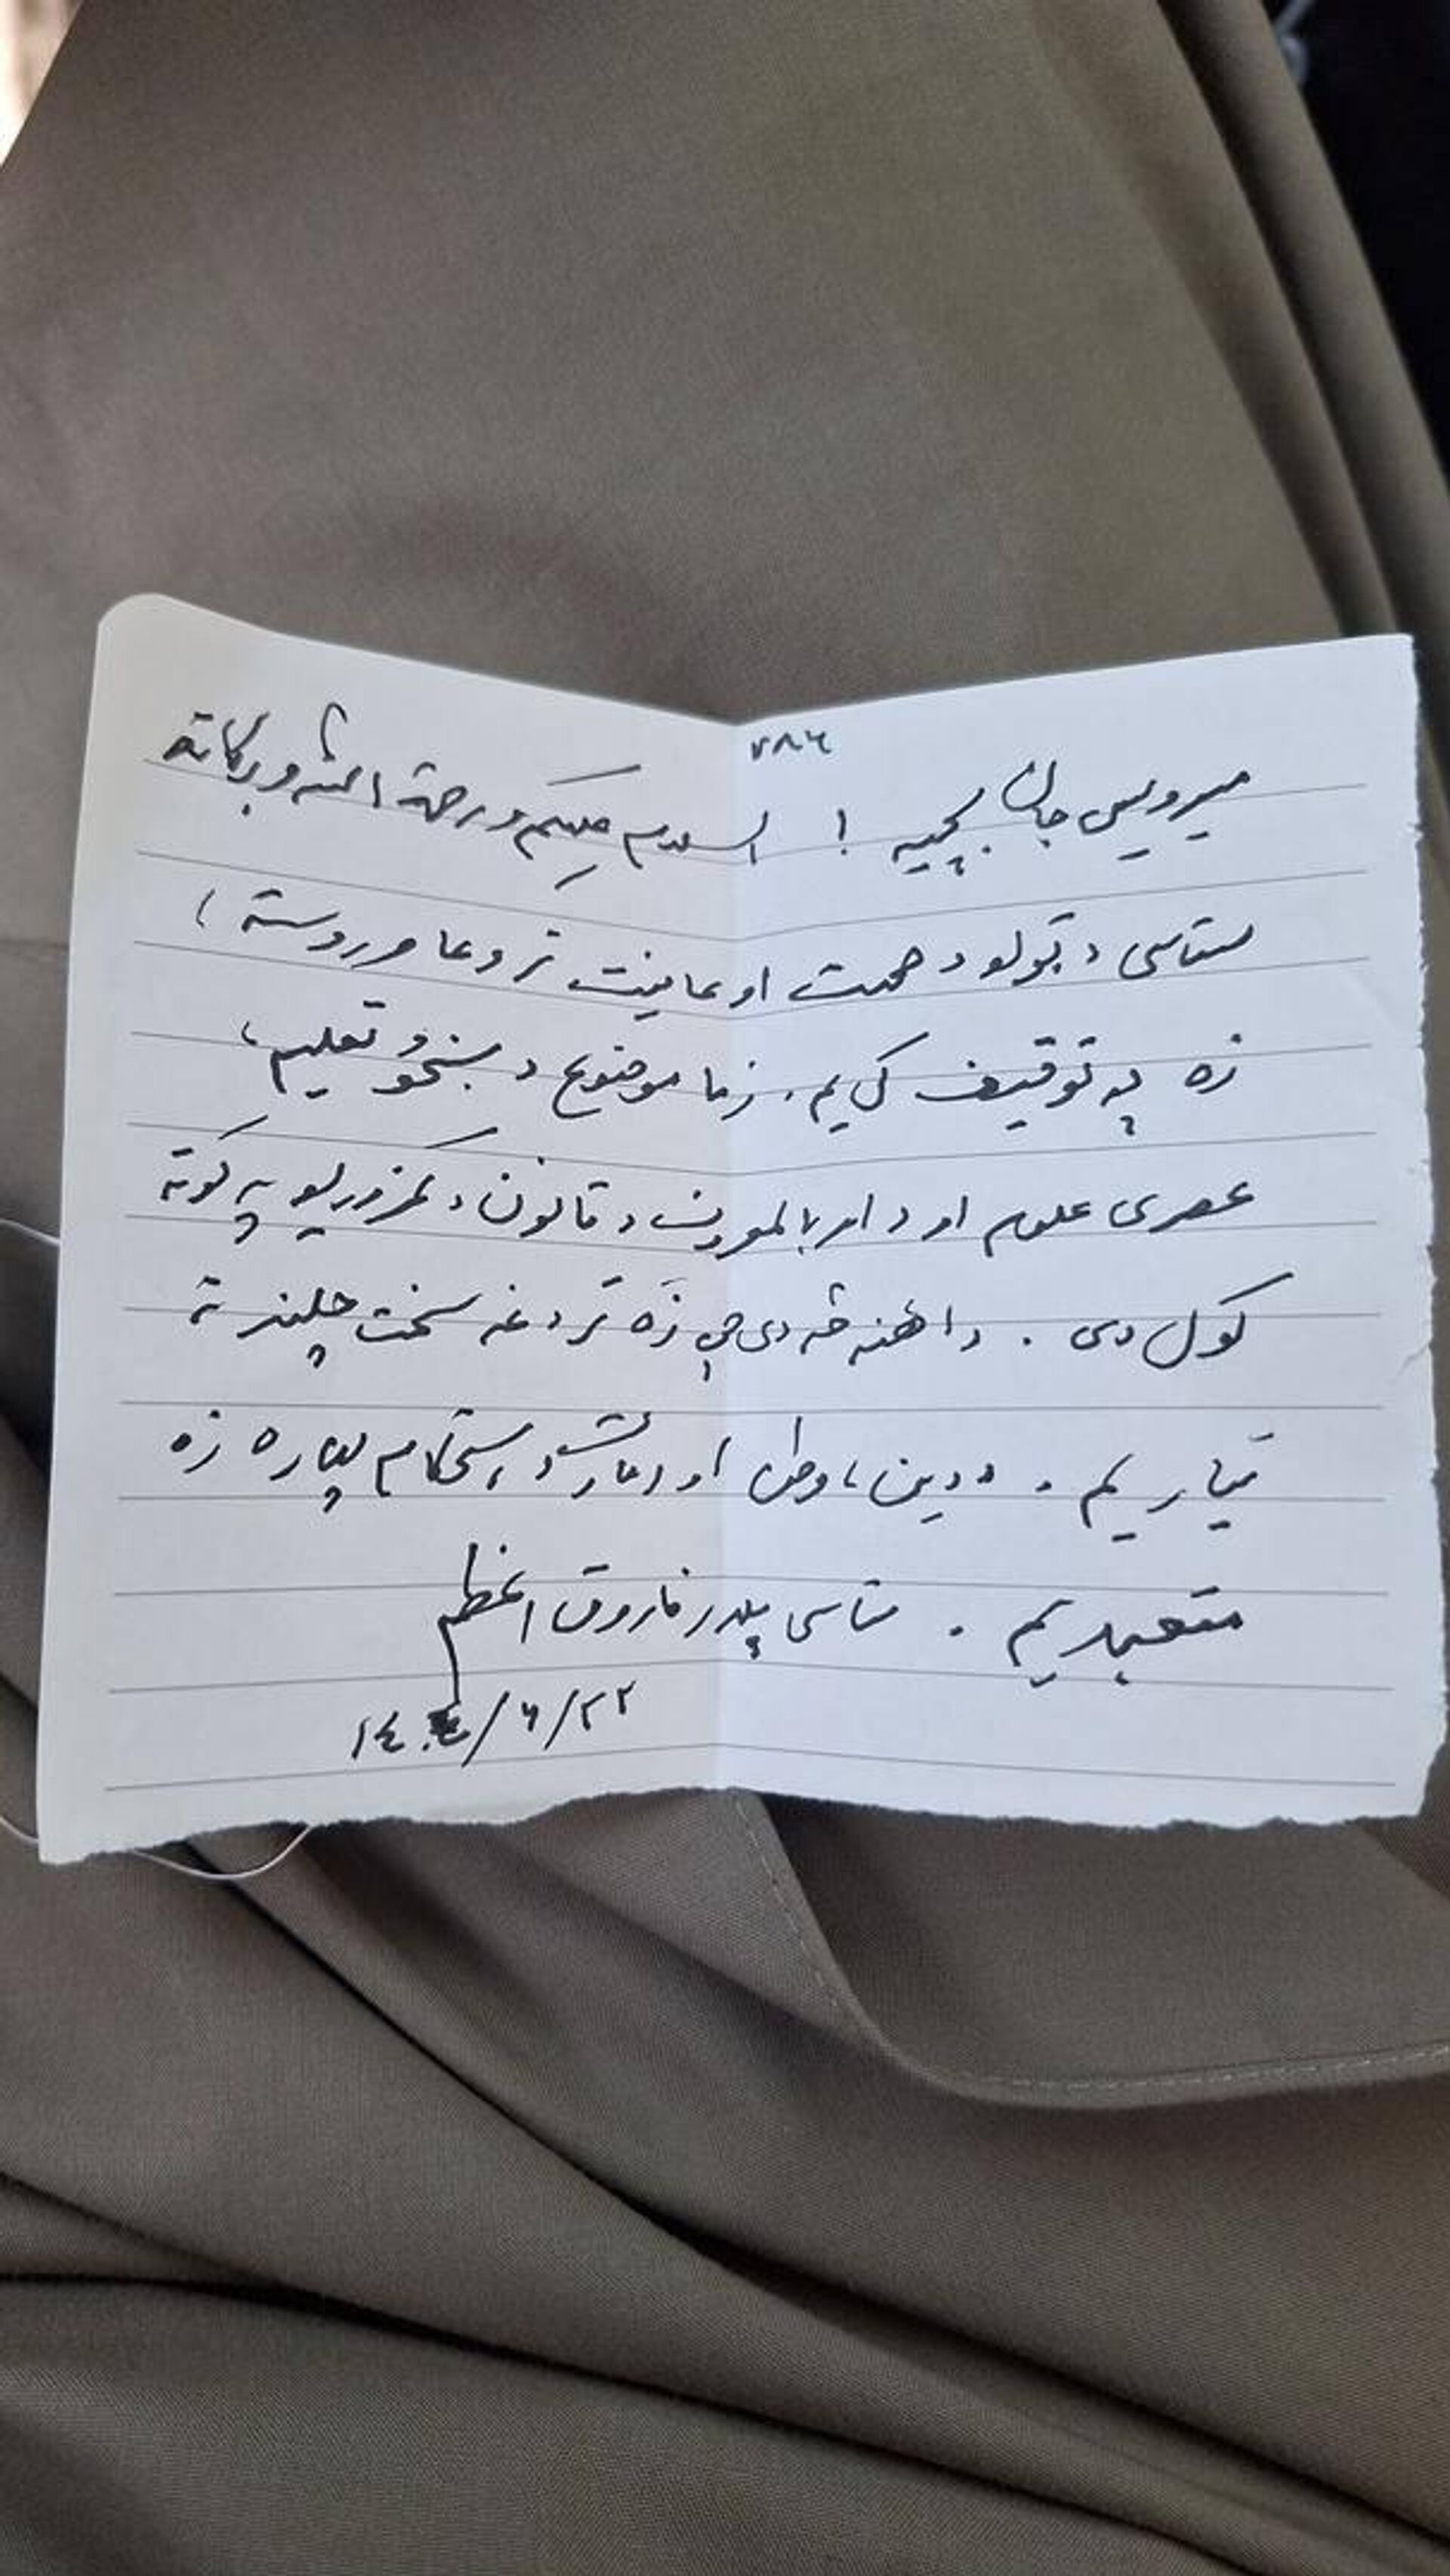 ۷۸۶
میرویس جان بچیه ! السلام علیکم و رحمة الله و برکاته
ستاسی د ټولو د صحت او عافیت تر دعا وروسته ،
زه په توقیف کی یم . زما موضوع د ښځو تعلیم ،
عصری علوم او د امر بالمعروف د قانون د کمزوریو په ګوته
کول دی . دا هغه څه دی چی زه تر دغه سخت چلند ته
تیار یم . د دین ، وطن او امارت د استحکام لپاره زه
متعهد یم . ستاسی پلار فاروق اعظم
۱۴۰۴/۶/۲۲